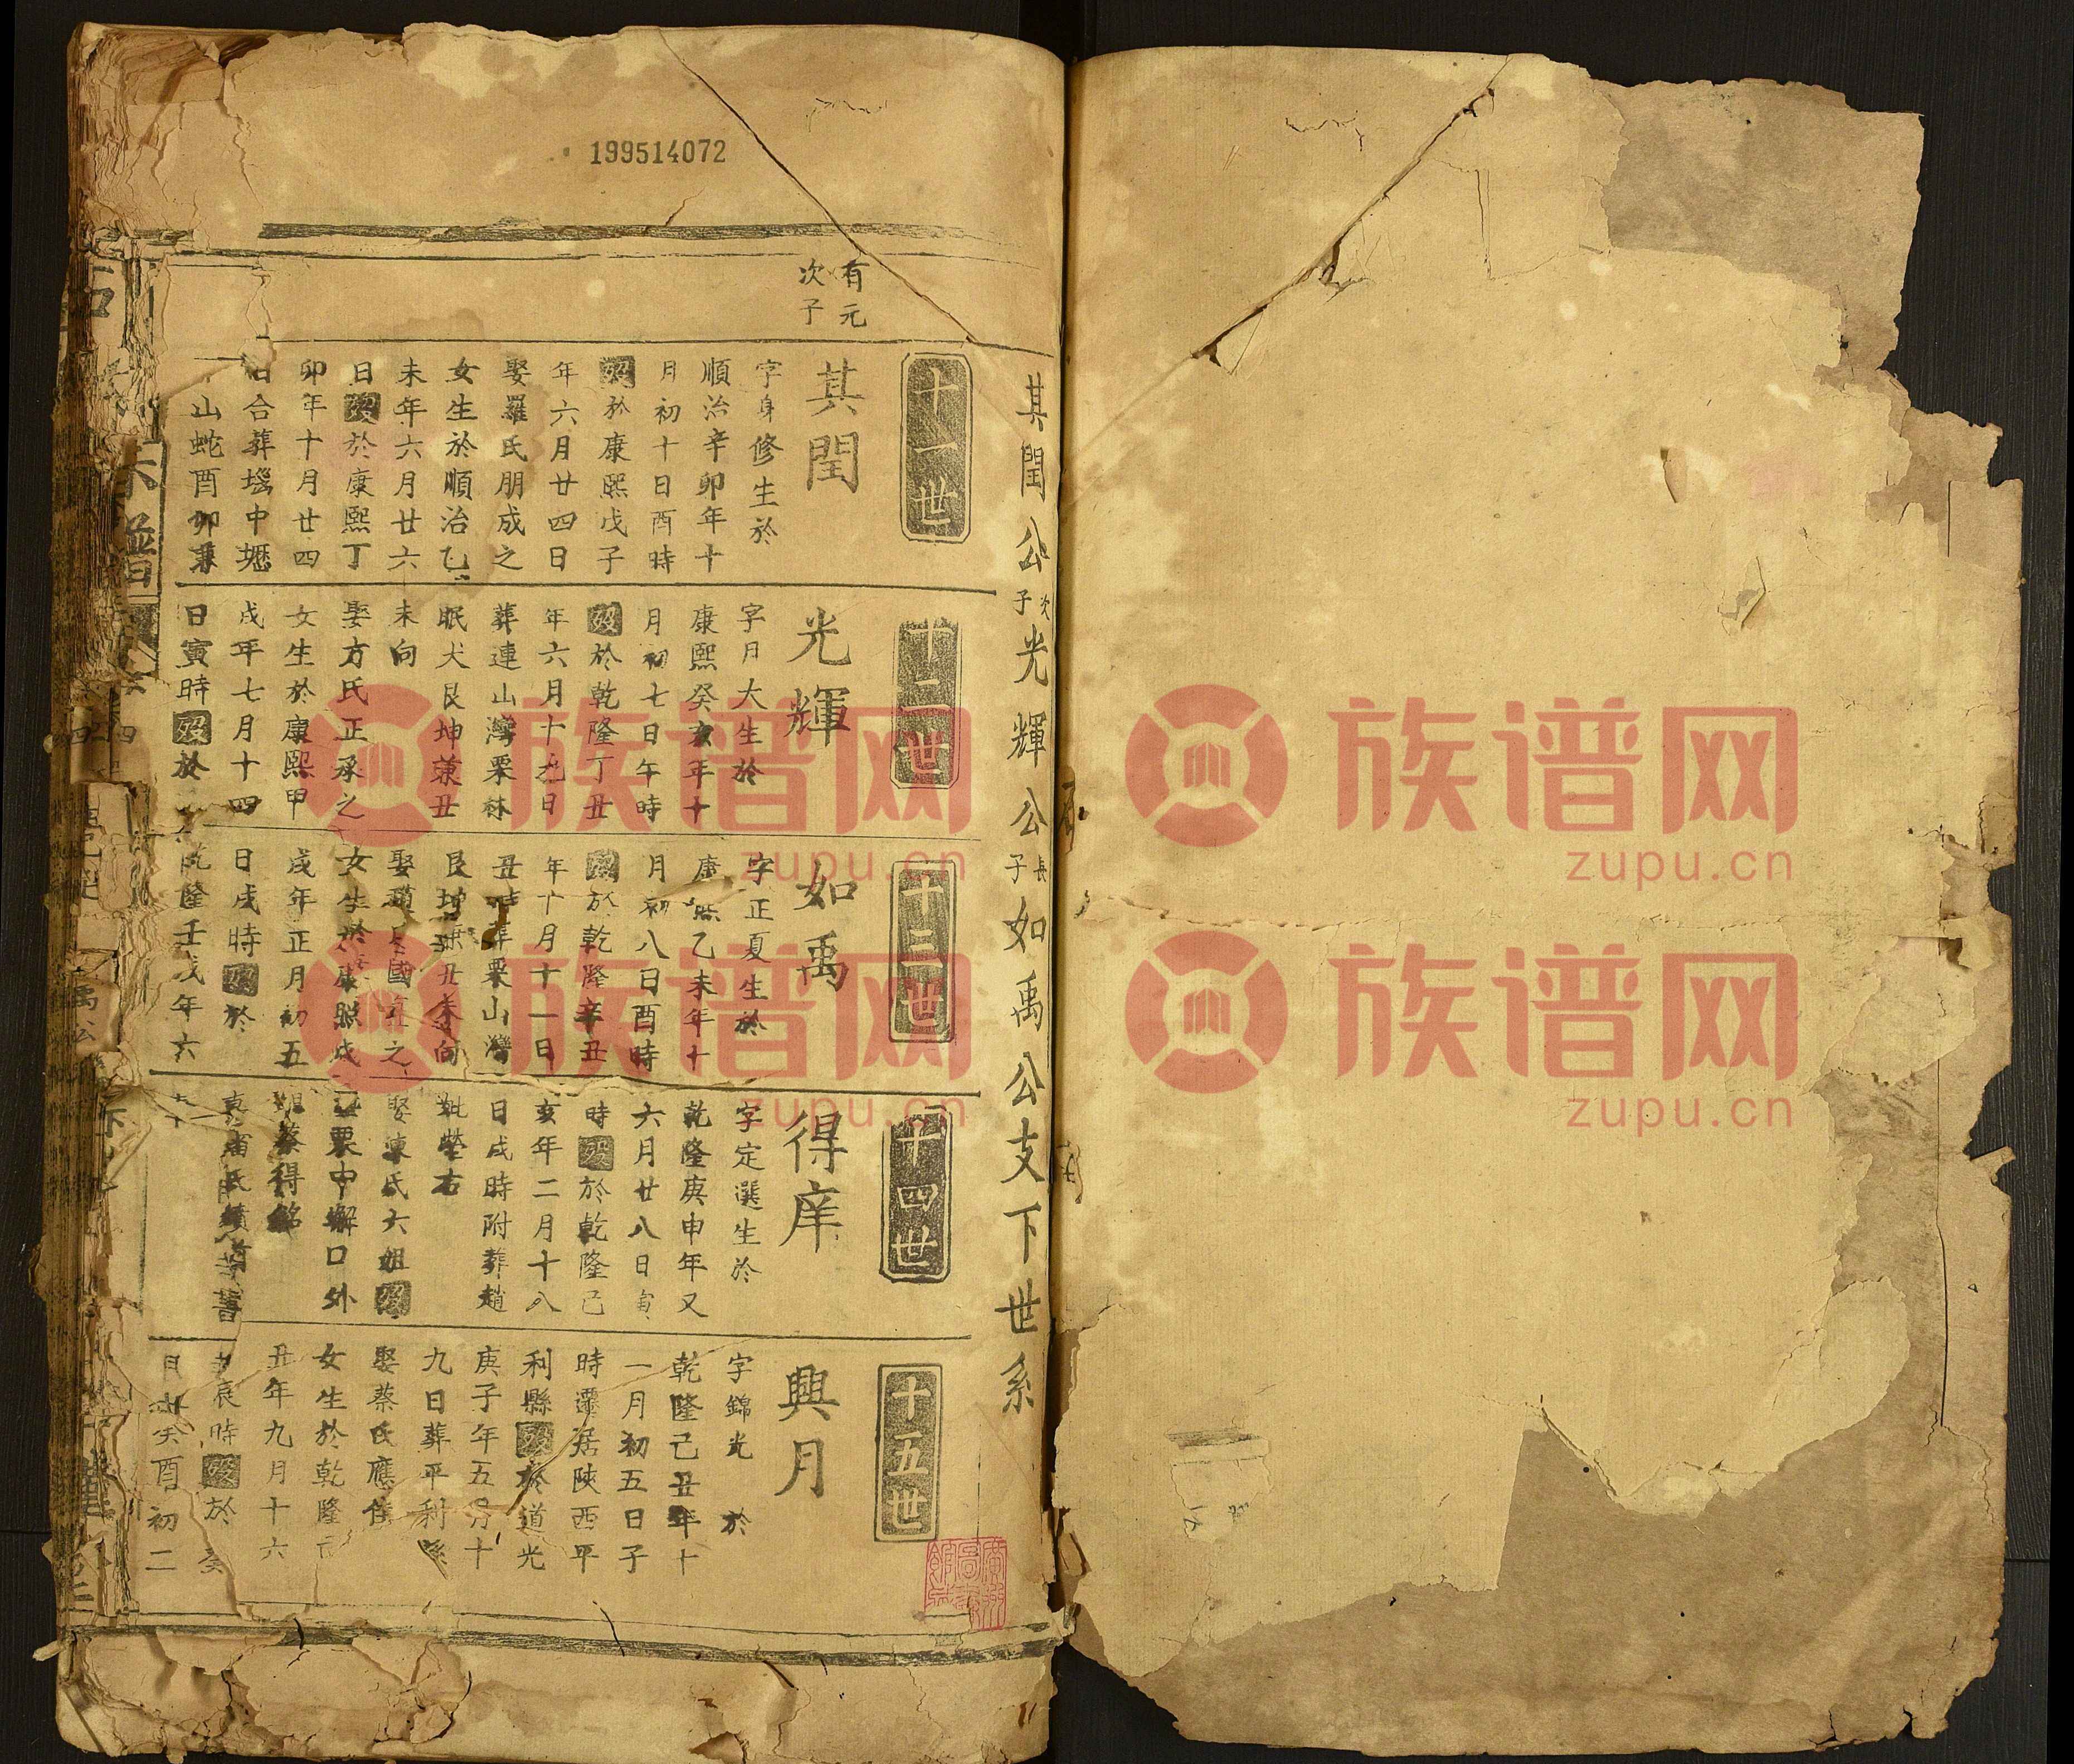 199514072
其閏公次子光輝公長子如禹公支下世系
十一世
有元
次子
其閏
字身修生於
順治辛卯年十
月初十日酉時
歿於康熙戊子
年六月廿四日
娶羅氏朋成之
女生於順治乙
未年六月廿六
日歿於康熙丁
卯年十月廿四
合葬塢中塅
山蛇酉卯兼
十二世
光輝
字月大生於
康熙癸亥年十
月初七日午時
歿於乾隆丁丑
年六月十九日
葬連山灣栗林
眠犬艮坤兼丑
未向
娶方氏正承之
女生於康熙甲
戌年七月十四
日寅時歿於
十三世
如禹
字正夏生於
康熙乙未年十
月初八日酉時
歿於乾隆辛丑
年十月十一日
丑時葬栗山灣
艮坤兼丑未向
娶氏國之
女生於康熙戊
戌年正月初五
日戌時歿於
乾隆壬戌年六
十四世
得庠
字定選生於
乾隆庚申年又
六月廿八日寅
時歿於乾隆己
亥年二月十八
日戌時附葬趙
妣塋右
娶陳氏大姐歿
葬栗中獬口外
蔡得銘
氏
十五世
興月
字錦光 於
乾隆己丑年十
一月初五日子
時遷居陝西平
利縣歿於道光
庚子年五月十
九日葬平利縣
娶蔡氏應佳
女生於乾隆
丑年九月十六
辰時歿於
月癸酉初二
族谱网
zupu.cn
族谱网
zupu.cn
族谱网
族谱网
zupu.cn